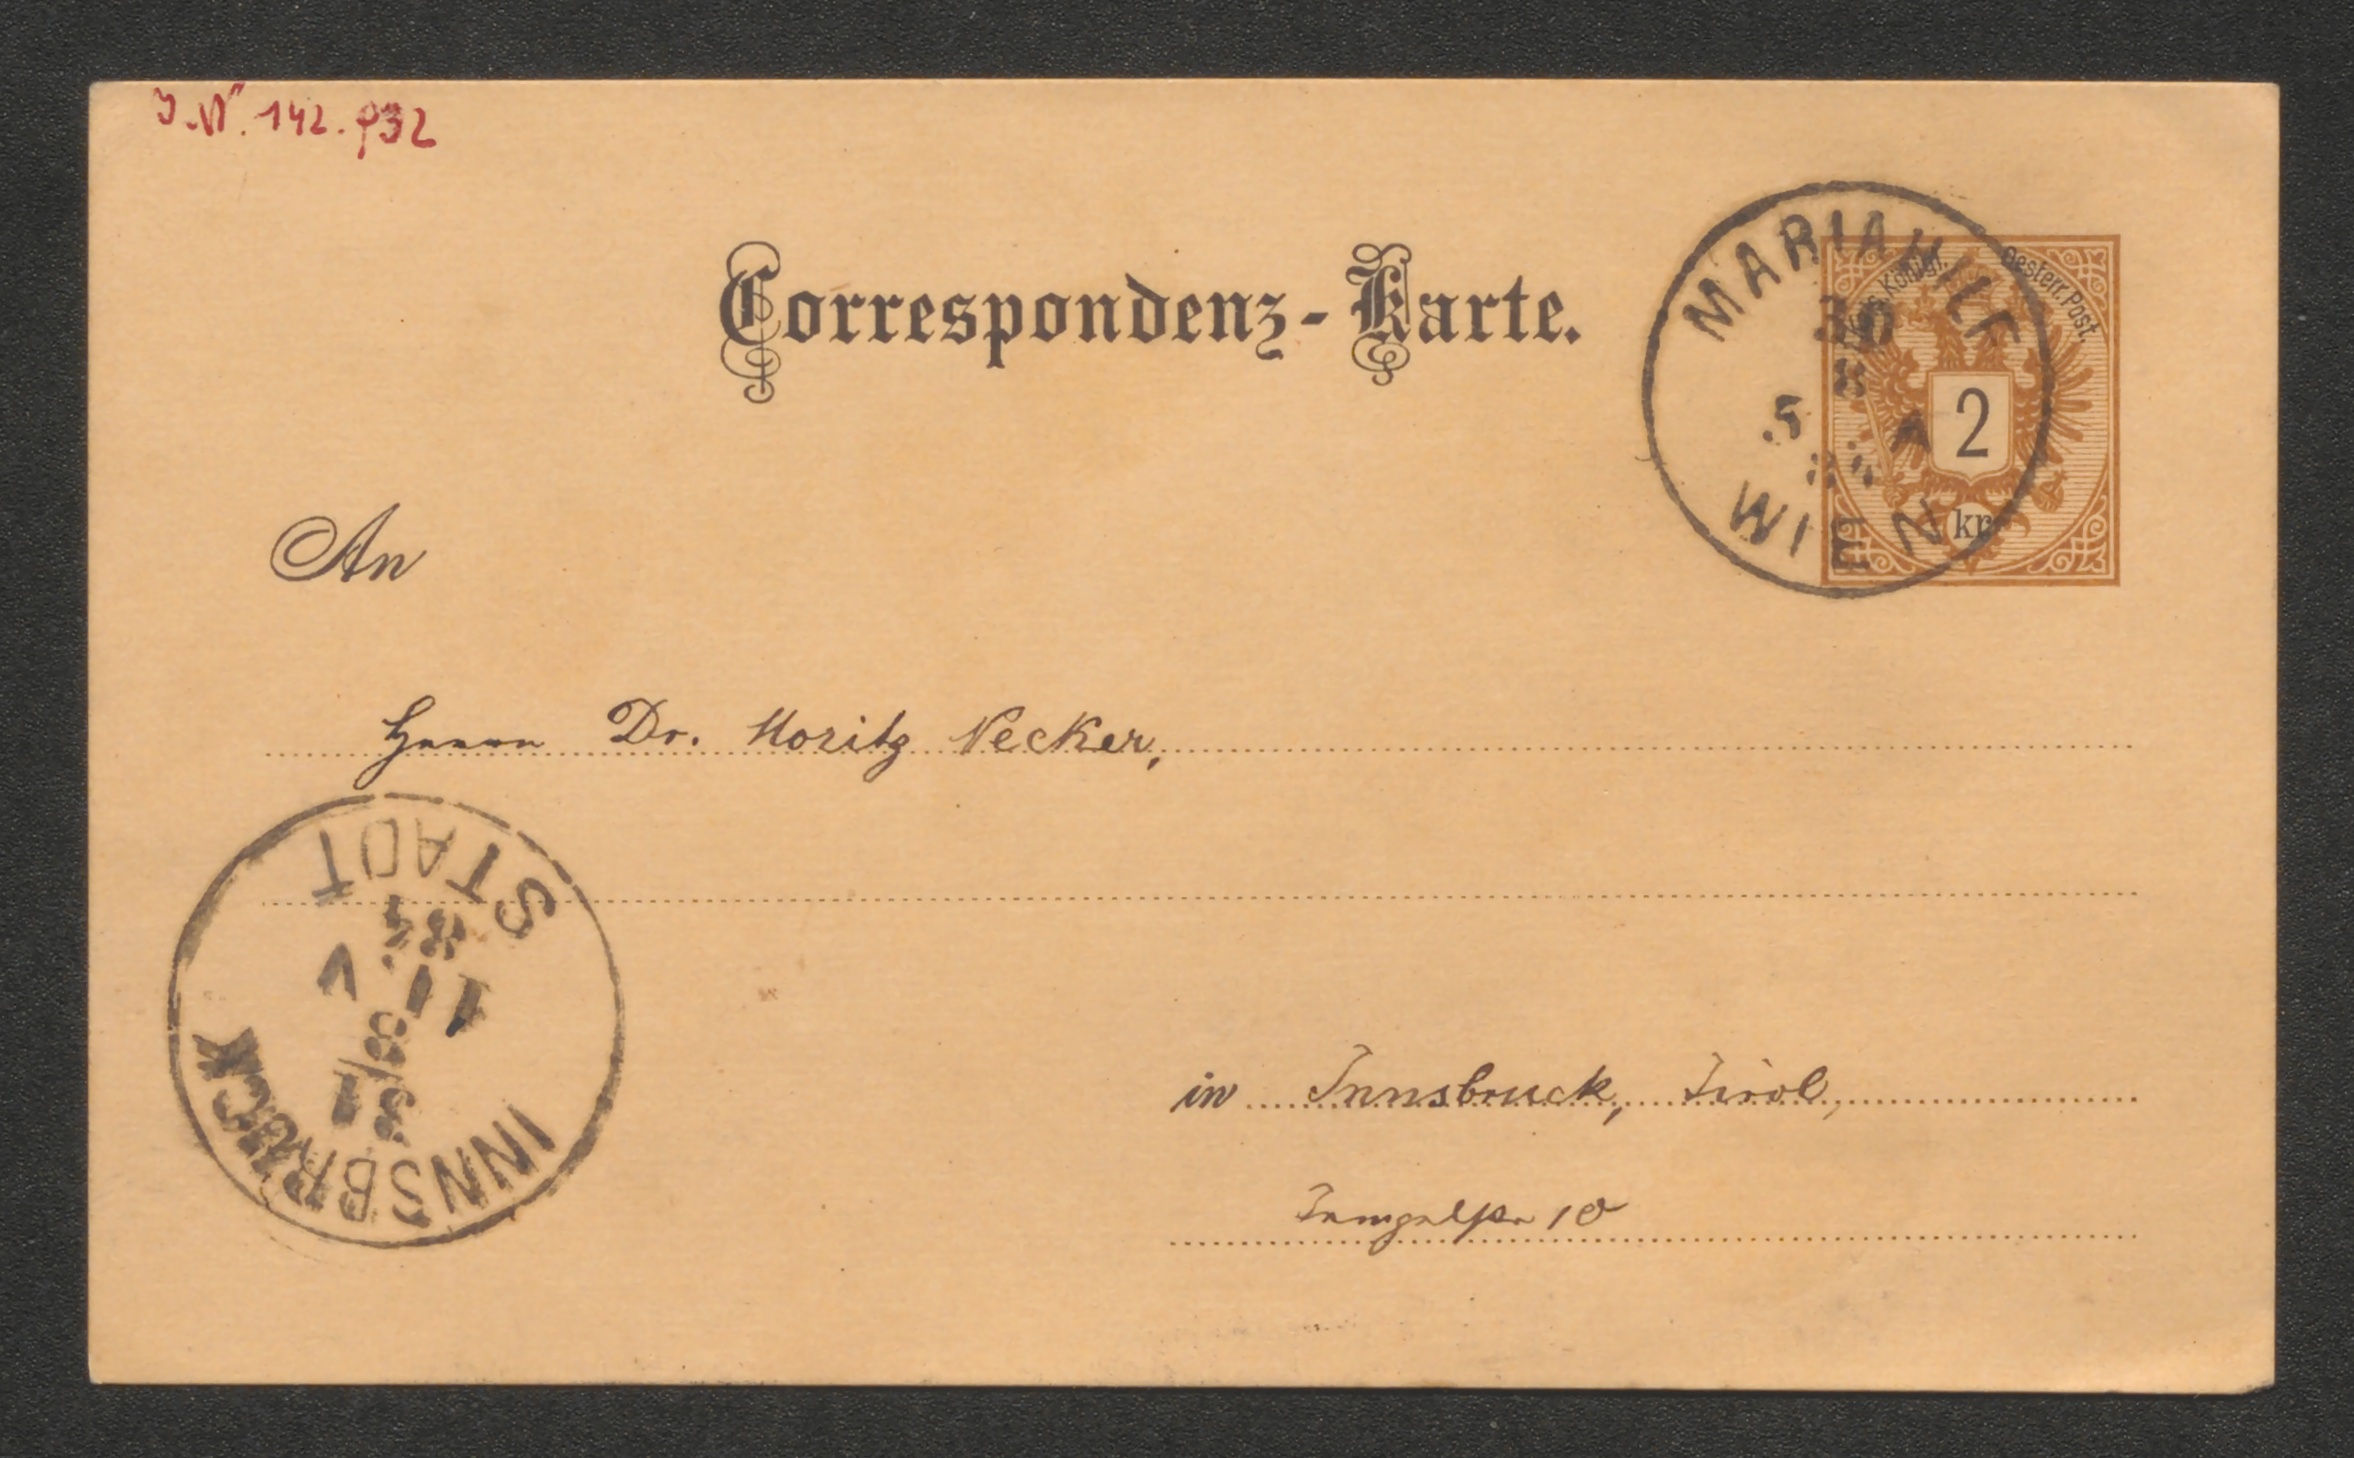 J.N. 142.932
Correspondenz-Karte.
MARIAHILF
30
8
5 A
84
WIEN
Oesterr. Post.
2
kr
An
Herrn Dr. Moritz Necker,
INNSBRUCK
31/8
11 V
84
STADT
in Innsbruck, Tirol,
10